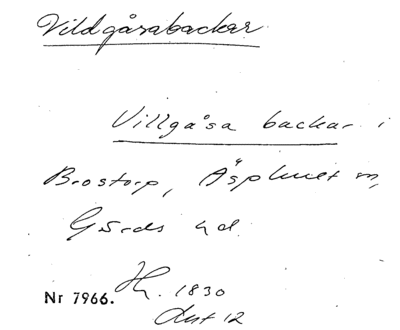 Vildgåsabackar.
Villgåsa backar i
Brostorp, Äsphult sn,
Gärds hd.
Nr 7966. Hy. 1830
Avt 12